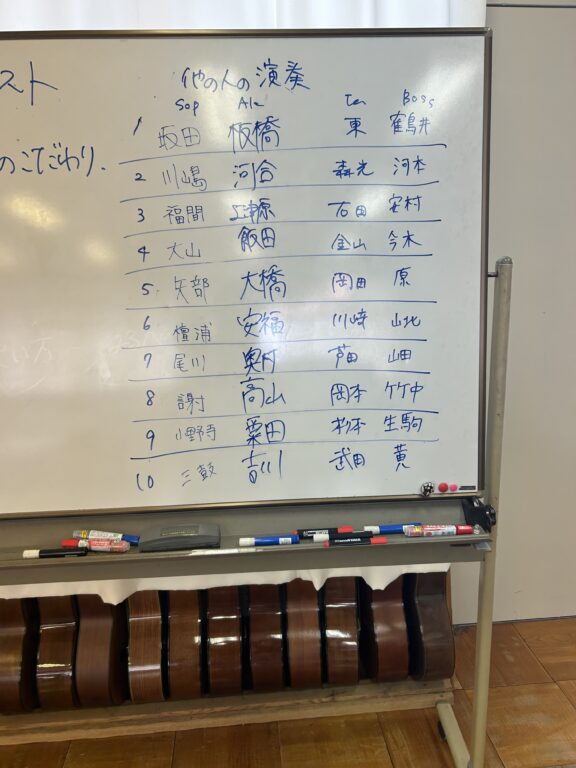 スト
のこだわり.
他の人の演奏
Sop Alt Ten Bass
1 坂田 板橋 東 鶴井
2 川嶋 河合 森光 河本
3 福間 上津原 石田 安村
4 大山 飯田 金山 今木
5 矢部 大橋 岡田 原
6 檀浦 安福 川﨑 山北
7 尾川 奥村 芦田 山田
8 謝 高山 岡本 竹中
9 小野寺 粟田 杉本 生駒
10 三鼓 吉川 武田 黄